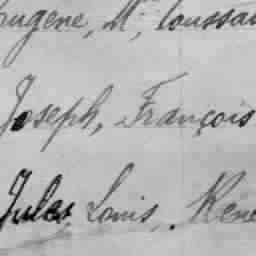 Eugène, M, Toussai
Joseph, François
Jules, Louis, René